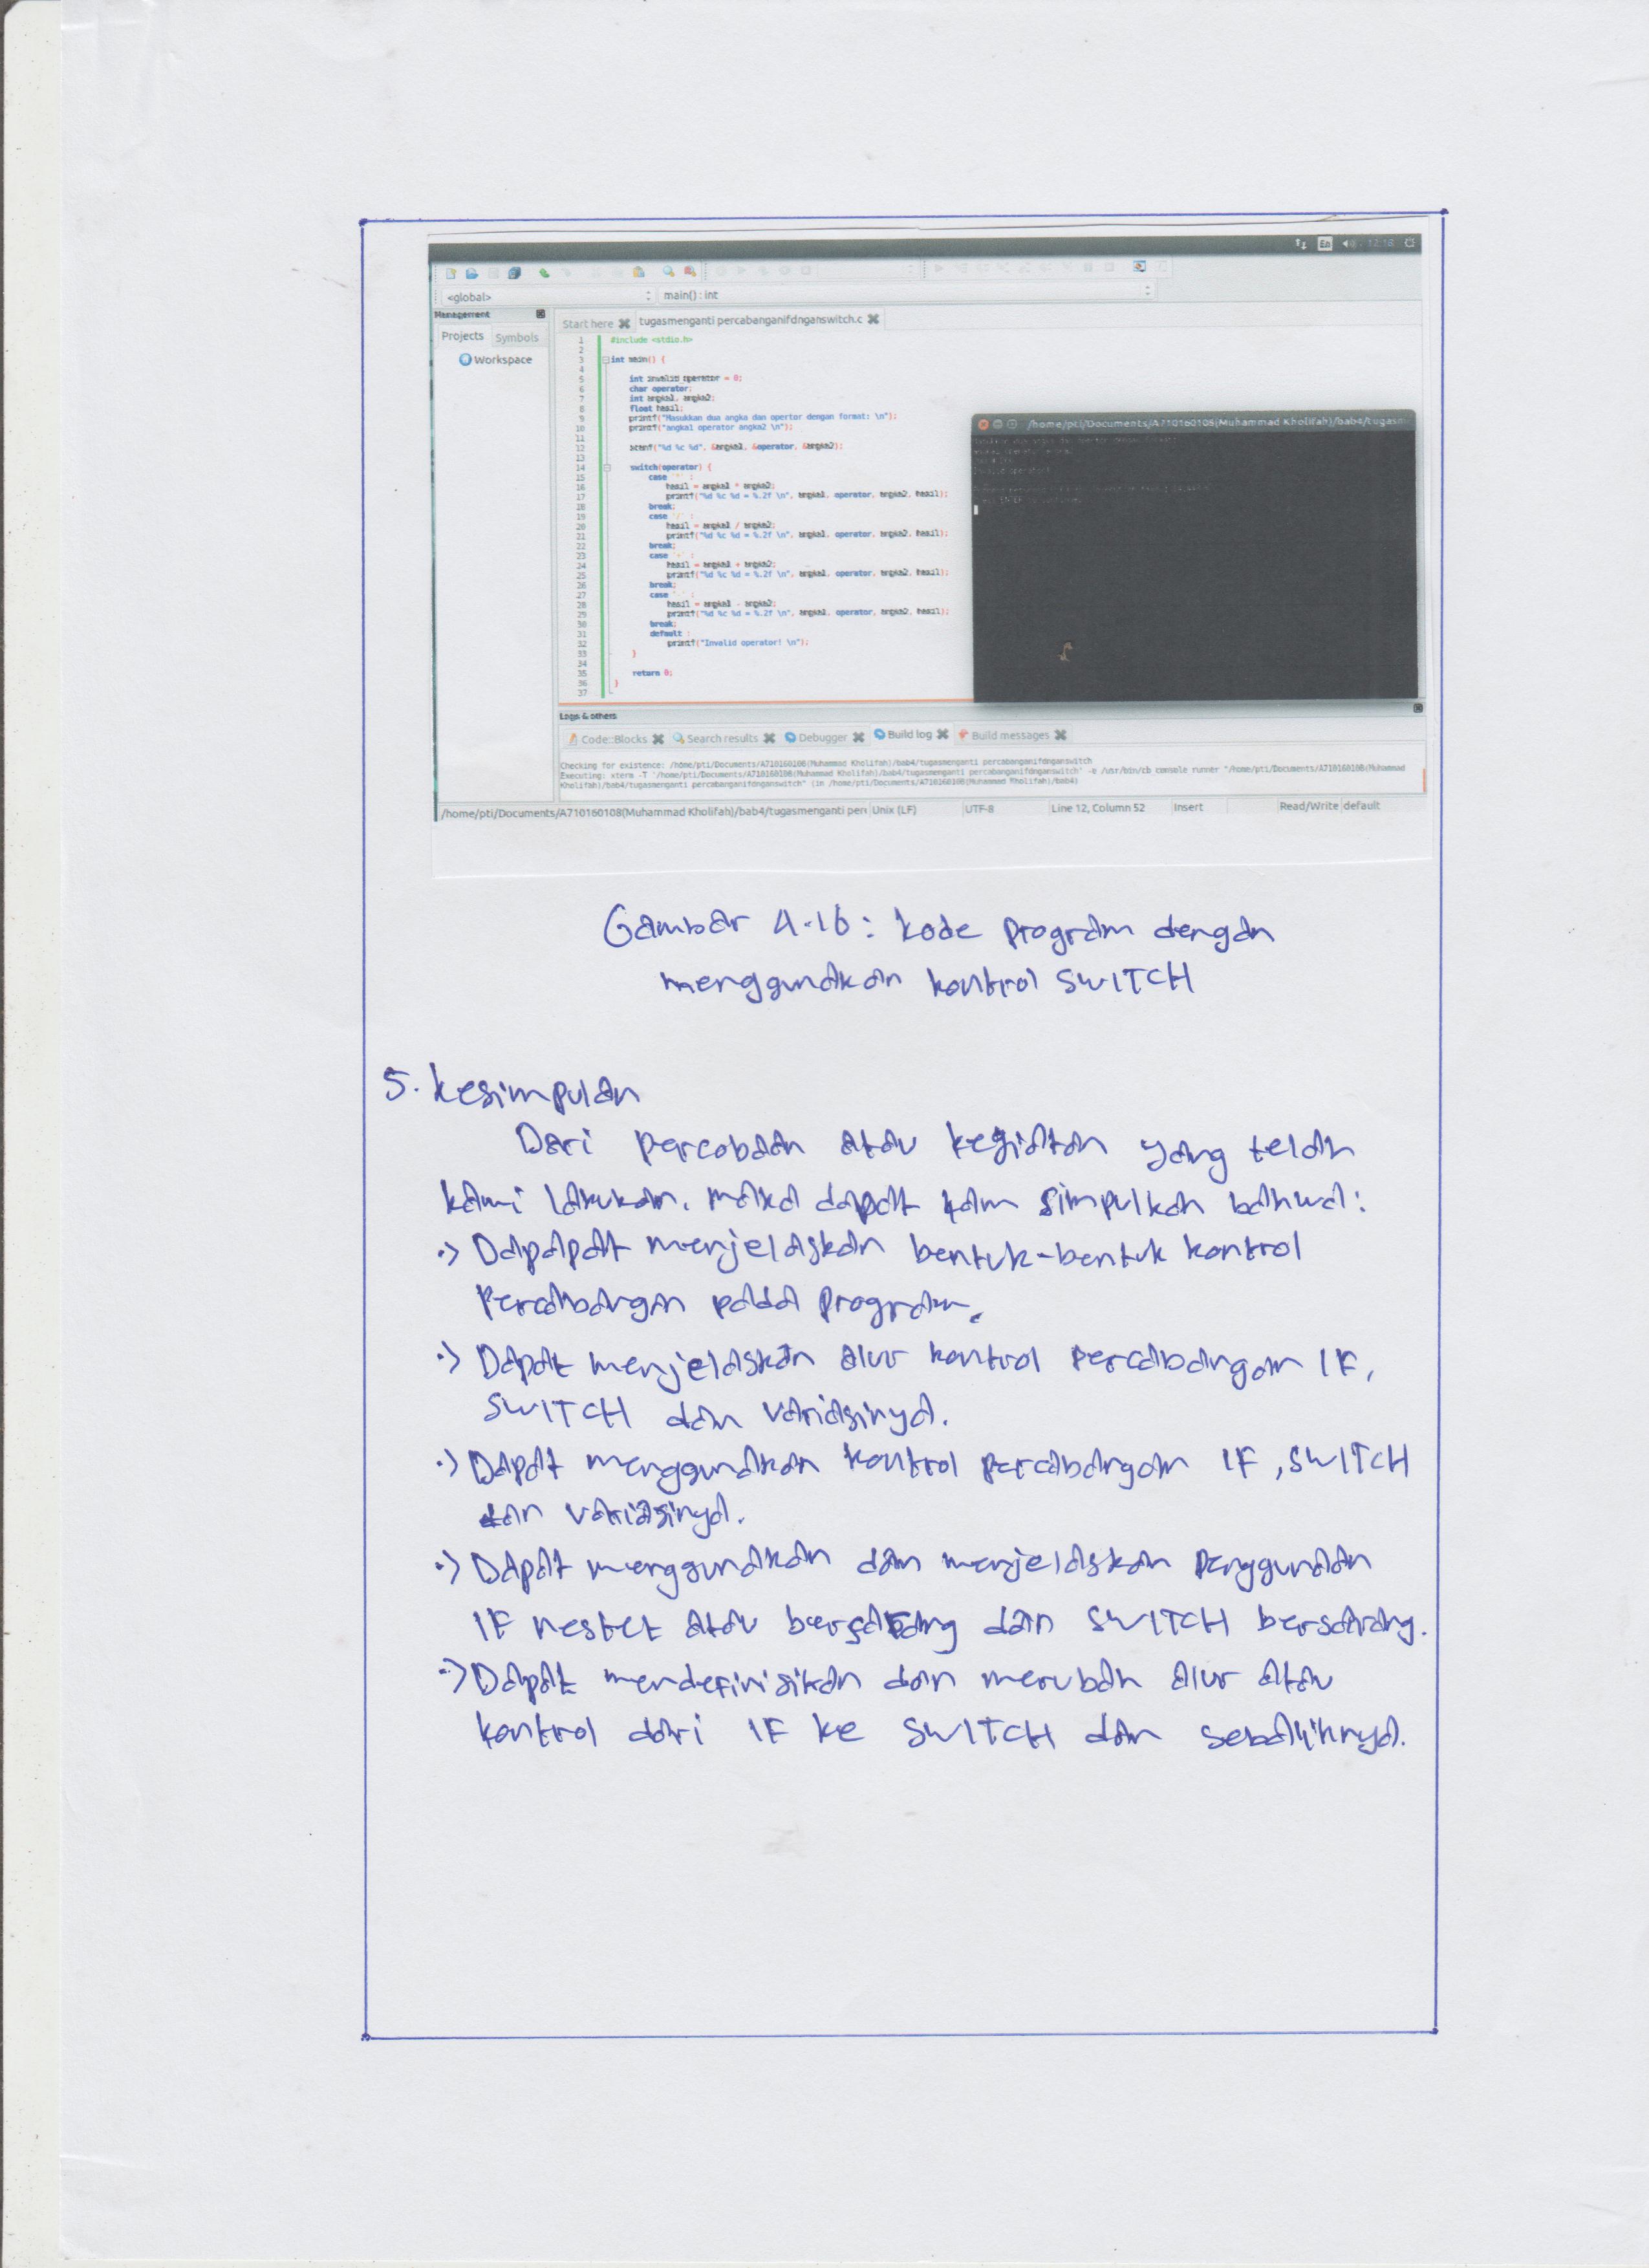 En 12:16
<global> main() : int
Management
Start here tugasmenganti percabanganifdnganswitch.c
Projects Symbols
Workspace
1 #include <stdio.h>
2
3 int main() {
4
5 int invalid_operator = 0;
6 char operator;
7 int angka1, angka2;
8 float hasil;
9 printf("Masukkan dua angka dan opertor dengan format: \n");
10 printf("angka1 operator angka2 \n");
11
12 scanf("%d %c %d", &angka1, &operator, &angka2);
13
14 switch(operator) {
15 case '*' :
16 hasil = angka1 * angka2;
17 printf("%d %c %d = %.2f \n", angka1, operator, angka2, hasil);
18 break;
19 case '/' :
20 hasil = angka1 / angka2;
21 printf("%d %c %d = %.2f \n", angka1, operator, angka2, hasil);
22 break;
23 case '+' :
24 hasil = angka1 + angka2;
25 printf("%d %c %d = %.2f \n", angka1, operator, angka2, hasil);
26 break;
27 case '-' :
28 hasil = angka1 - angka2;
29 printf("%d %c %d = %.2f \n", angka1, operator, angka2, hasil);
30 break;
31 default :
32 printf("Invalid operator! \n");
33 }
34
35 return 0;
36 }
37
/home/pti/Documents/A710160108(Muhammad Kholifah)/bab4/tugasm
Logs & others
Code::Blocks Search results Debugger Build log Build messages
Checking for existence: /home/pti/Documents/A710160108(Muhammad Kholifah)/bab4/tugasmenganti percabanganifdnganswitch
Executing: xterm -T '/home/pti/Documents/A710160108(Muhammad Kholifah)/bab4/tugasmenganti percabanganifdnganswitch' -e /usr/bin/cb_console_runner "/home/pti/Documents/A710160108(Muhammad
Kholifah)/bab4/tugasmenganti percabanganifdnganswitch" (in /home/pti/Documents/A710160108(Muhammad Kholifah)/bab4)
/home/pti/Documents/A710160108(Muhammad Kholifah)/bab4/tugasmenganti per Unix (LF) UTF-8 Line 12, Column 52 Insert Read/Write default
Gambar 4.16 : kode program dengan
menggunakan kontrol SWITCH
5. Kesimpulan
Dari percobaan atau kegiatan yang telah
kami lakukan. maka dapat kam simpulkan bahwa :
·> Dapapat menjelaskan bentuk-bentuk kontrol
percabangan pada program.
·> Dapat menjelaskan alur kontrol percabangan IF,
SWITCH dan variasinya.
·> Dapat menggunakan kontrol percabangan IF, SWITCH
dan variasinya.
·> Dapat menggunakan dan menjelaskan penggunaan
IF nestet atau bersarang dan SWITCH bersarang.
·> Dapat mendefinisikan dan merubah alur atau
kontrol dari IF ke SWITCH dan sebaliknya.